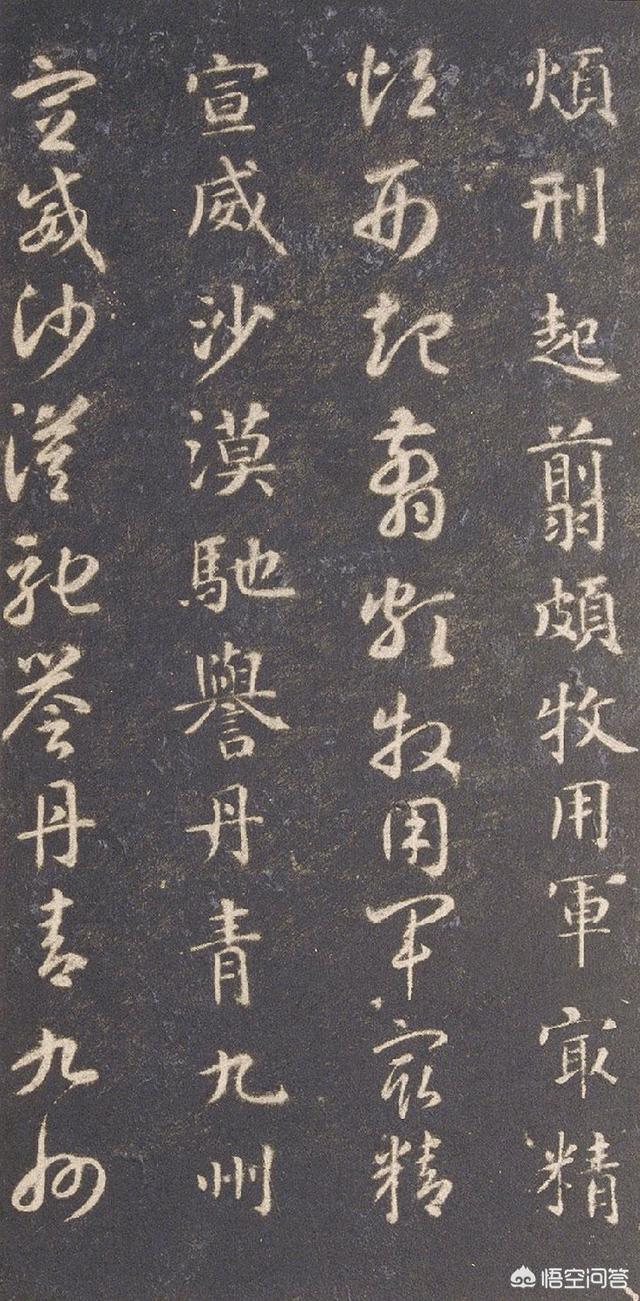 煩刑起翦頗牧用軍㝡精
煩刑起翦頗牧用軍㝡精
宣威沙漠馳譽丹青九州
宣威沙漠馳譽丹青九州
悟空问答